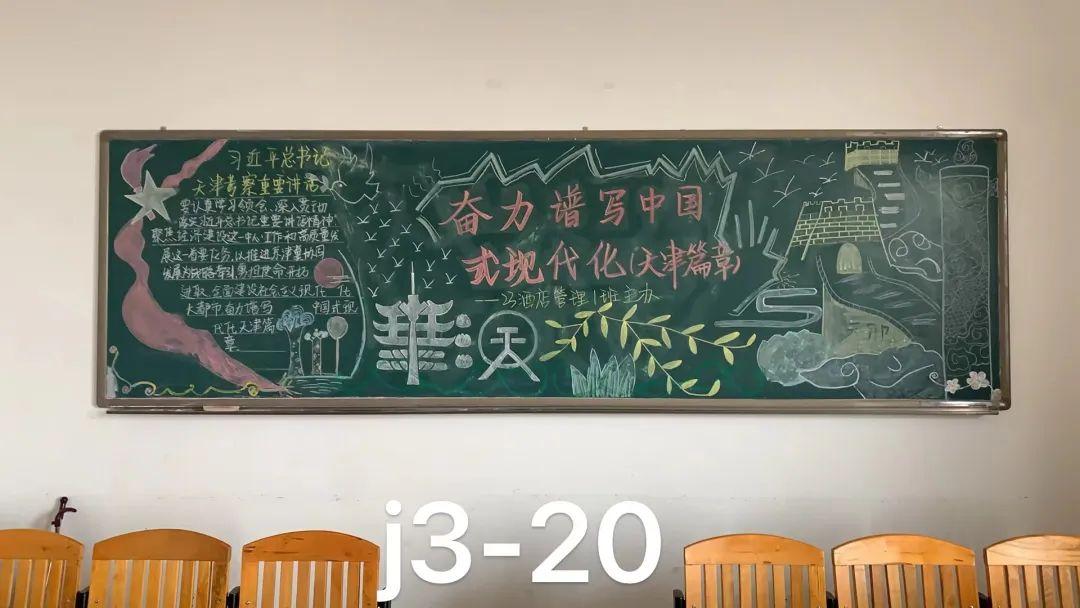 习近平总书记
天津考察重要讲话
要认真学习领会、深入贯彻
落实习近平总书记重要讲话精神
聚焦经济建设这一中心工作和高质量发
展这一首要任务，以推进京津冀协同
发展为战略牵引，勇担使命开拓
进取，全面建设社会主义现代化
大都市奋力谱写 中国式现
代化天津篇
章
奋力谱写中国
式现代化(天津篇章)
——23酒店管理1班主办
天
j3-20